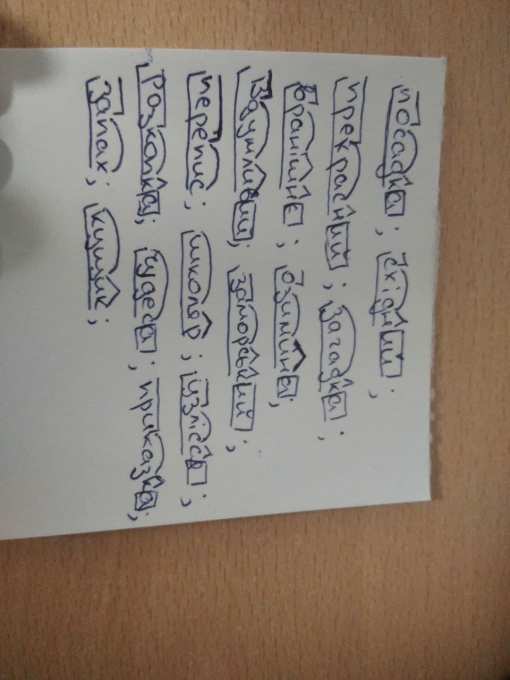 посадка; східний;
прекрасний; загадка;
вранішнє; озимина;
Вдумливий; заморський;
перепис; школяр; узлісся;
Розкопка; чудеса; приказка;
запах; кущик;